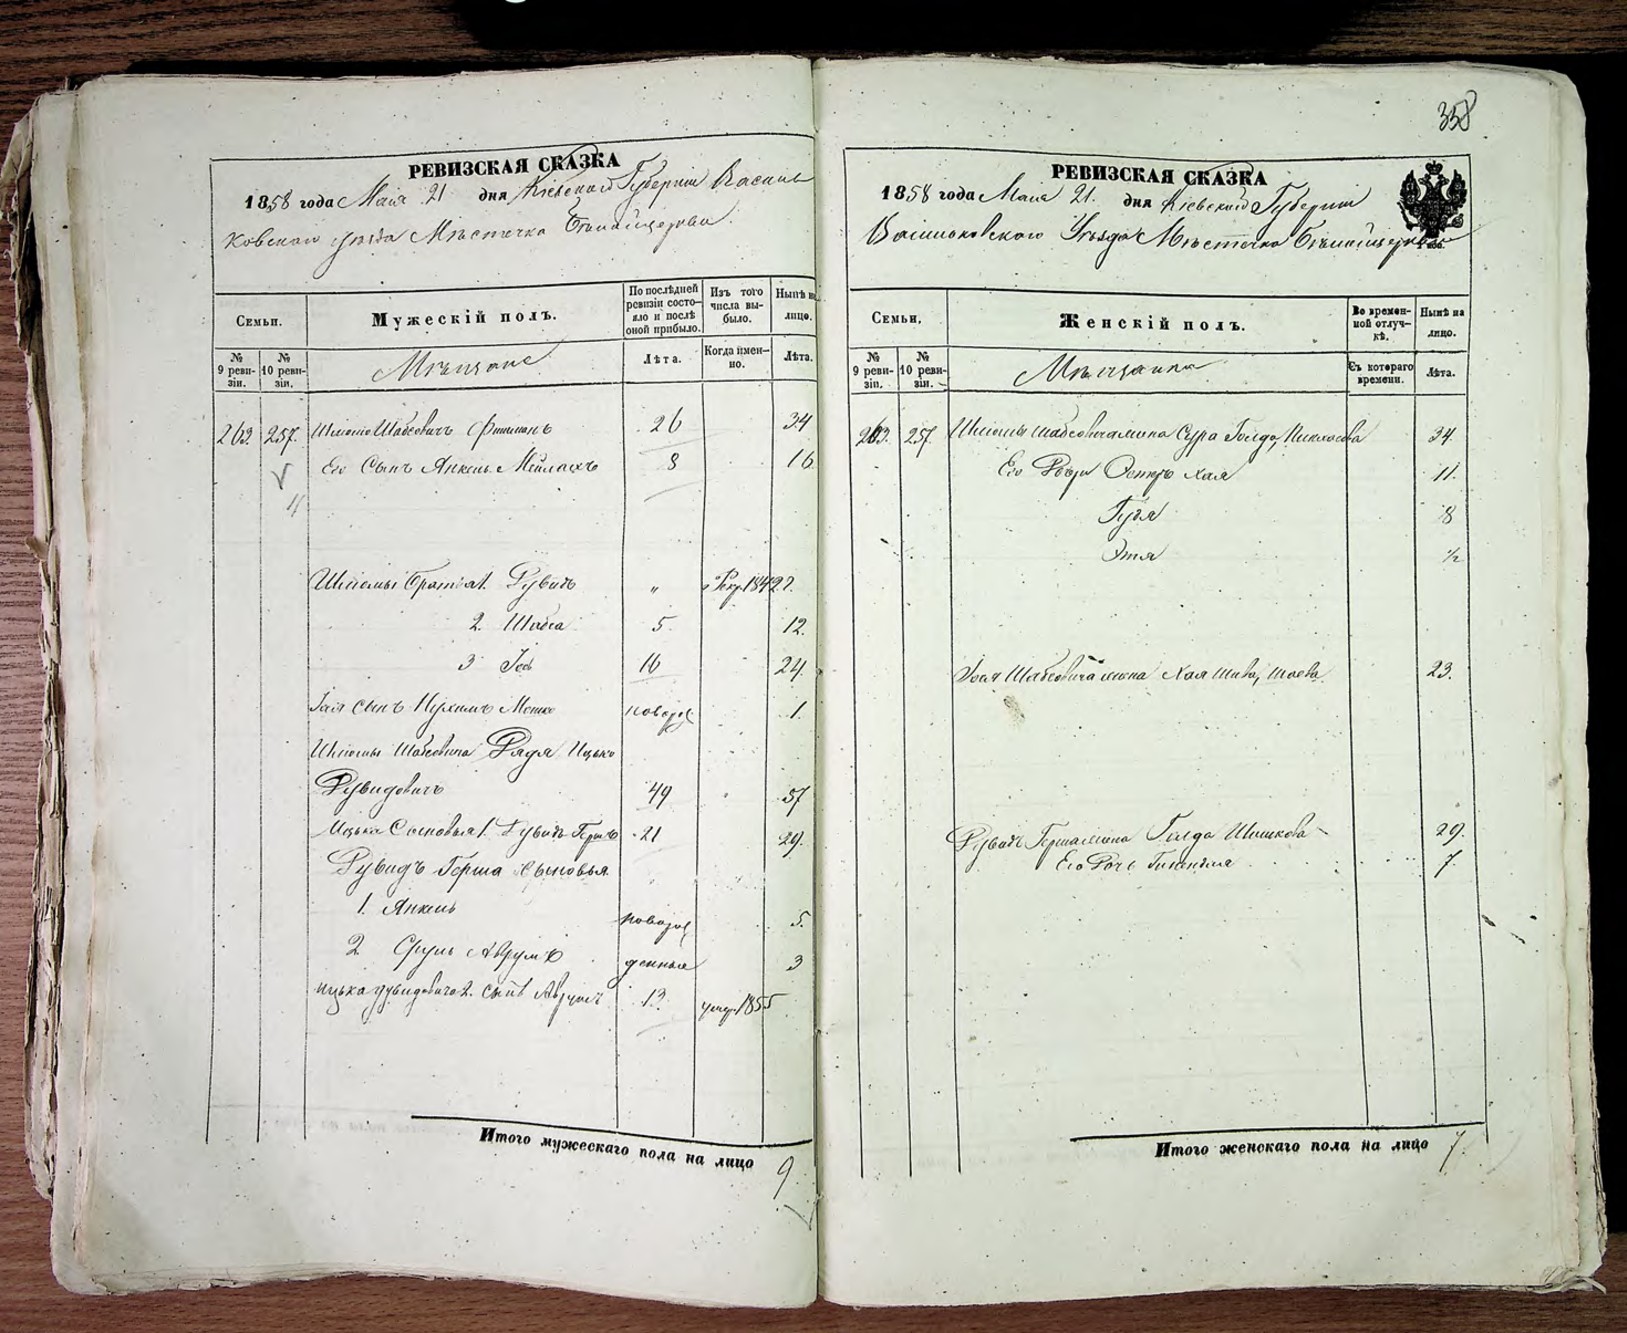 358
РЕВИЗСКАЯ СКАЗКА
1858 года Мая 21 дня Кіевской Губерніи Василь
ковскаго уѣзда Мѣстечка Бѣлойцеркви
Семьи.
Мужескій полъ.
По послѣдней ревизіи состо-
яло и послѣ оной прибыло.
Изъ того числа вы-
было.
Нынѣ на лицо.
№ 9 реви-
зіи.
№ 10 реви-
зіи.
Мѣщане
Лѣта.
Когда имен-
но.
Лѣта.
263. 257. Шлиома Шабсовичъ 26 34
Его Сынъ Анкель Мейлахъ 8 16
Шлиомы Братья 1. Дувидъ " 1842
2. Шабса 5. 12.
3 16 24.
Сынъ Нухимъ Мошко новорож 1.
Шлиомы Шабсовича Дядя Ицько
Дувидовичъ 49 57
Ицька Сыновья 1. Дувидъ Гершъ 21 29.
Дувидъ Герша Сыновья
1. Анкель новорож 5.
2 Сруль Аврумъ денные 3
Ицька Дувидовича 2. сынъ Аврумъ 13. умер. 1855
Итого мужескаго пола на лицо 9
РЕВИЗСКАЯ СКАЗКА
1858 года Мая 21. дня Кіевской Губерніи
Васильковского Уѣзда Мѣстечка Бѣлойцеркви
Семьи.
Женскій полъ.
Во времен-
ной отлуч-
кѣ.
Нынѣ на лицо.
№ 9 реви-
зіи.
№ 10 реви-
зіи.
Мѣщанки
Съ котораго времени.
Лѣта.
263. 257. Шлиомы Шабсовича жена Сура Голда 34.
Его Дочери Эстеръ Хая 11.
8
Этя ½
Шабсовича жена Хая 23.
Дувидъ Герша жена Голда 29.
Его Дочь 7.
Итого женскаго пола на лицо 7.